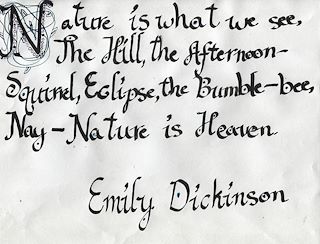 Nature is what we see,
The Hill, the Afternoon-
Squirrel, Eclipse, the Bumble-bee,
Nay-Nature is Heaven
Emily Dickinson